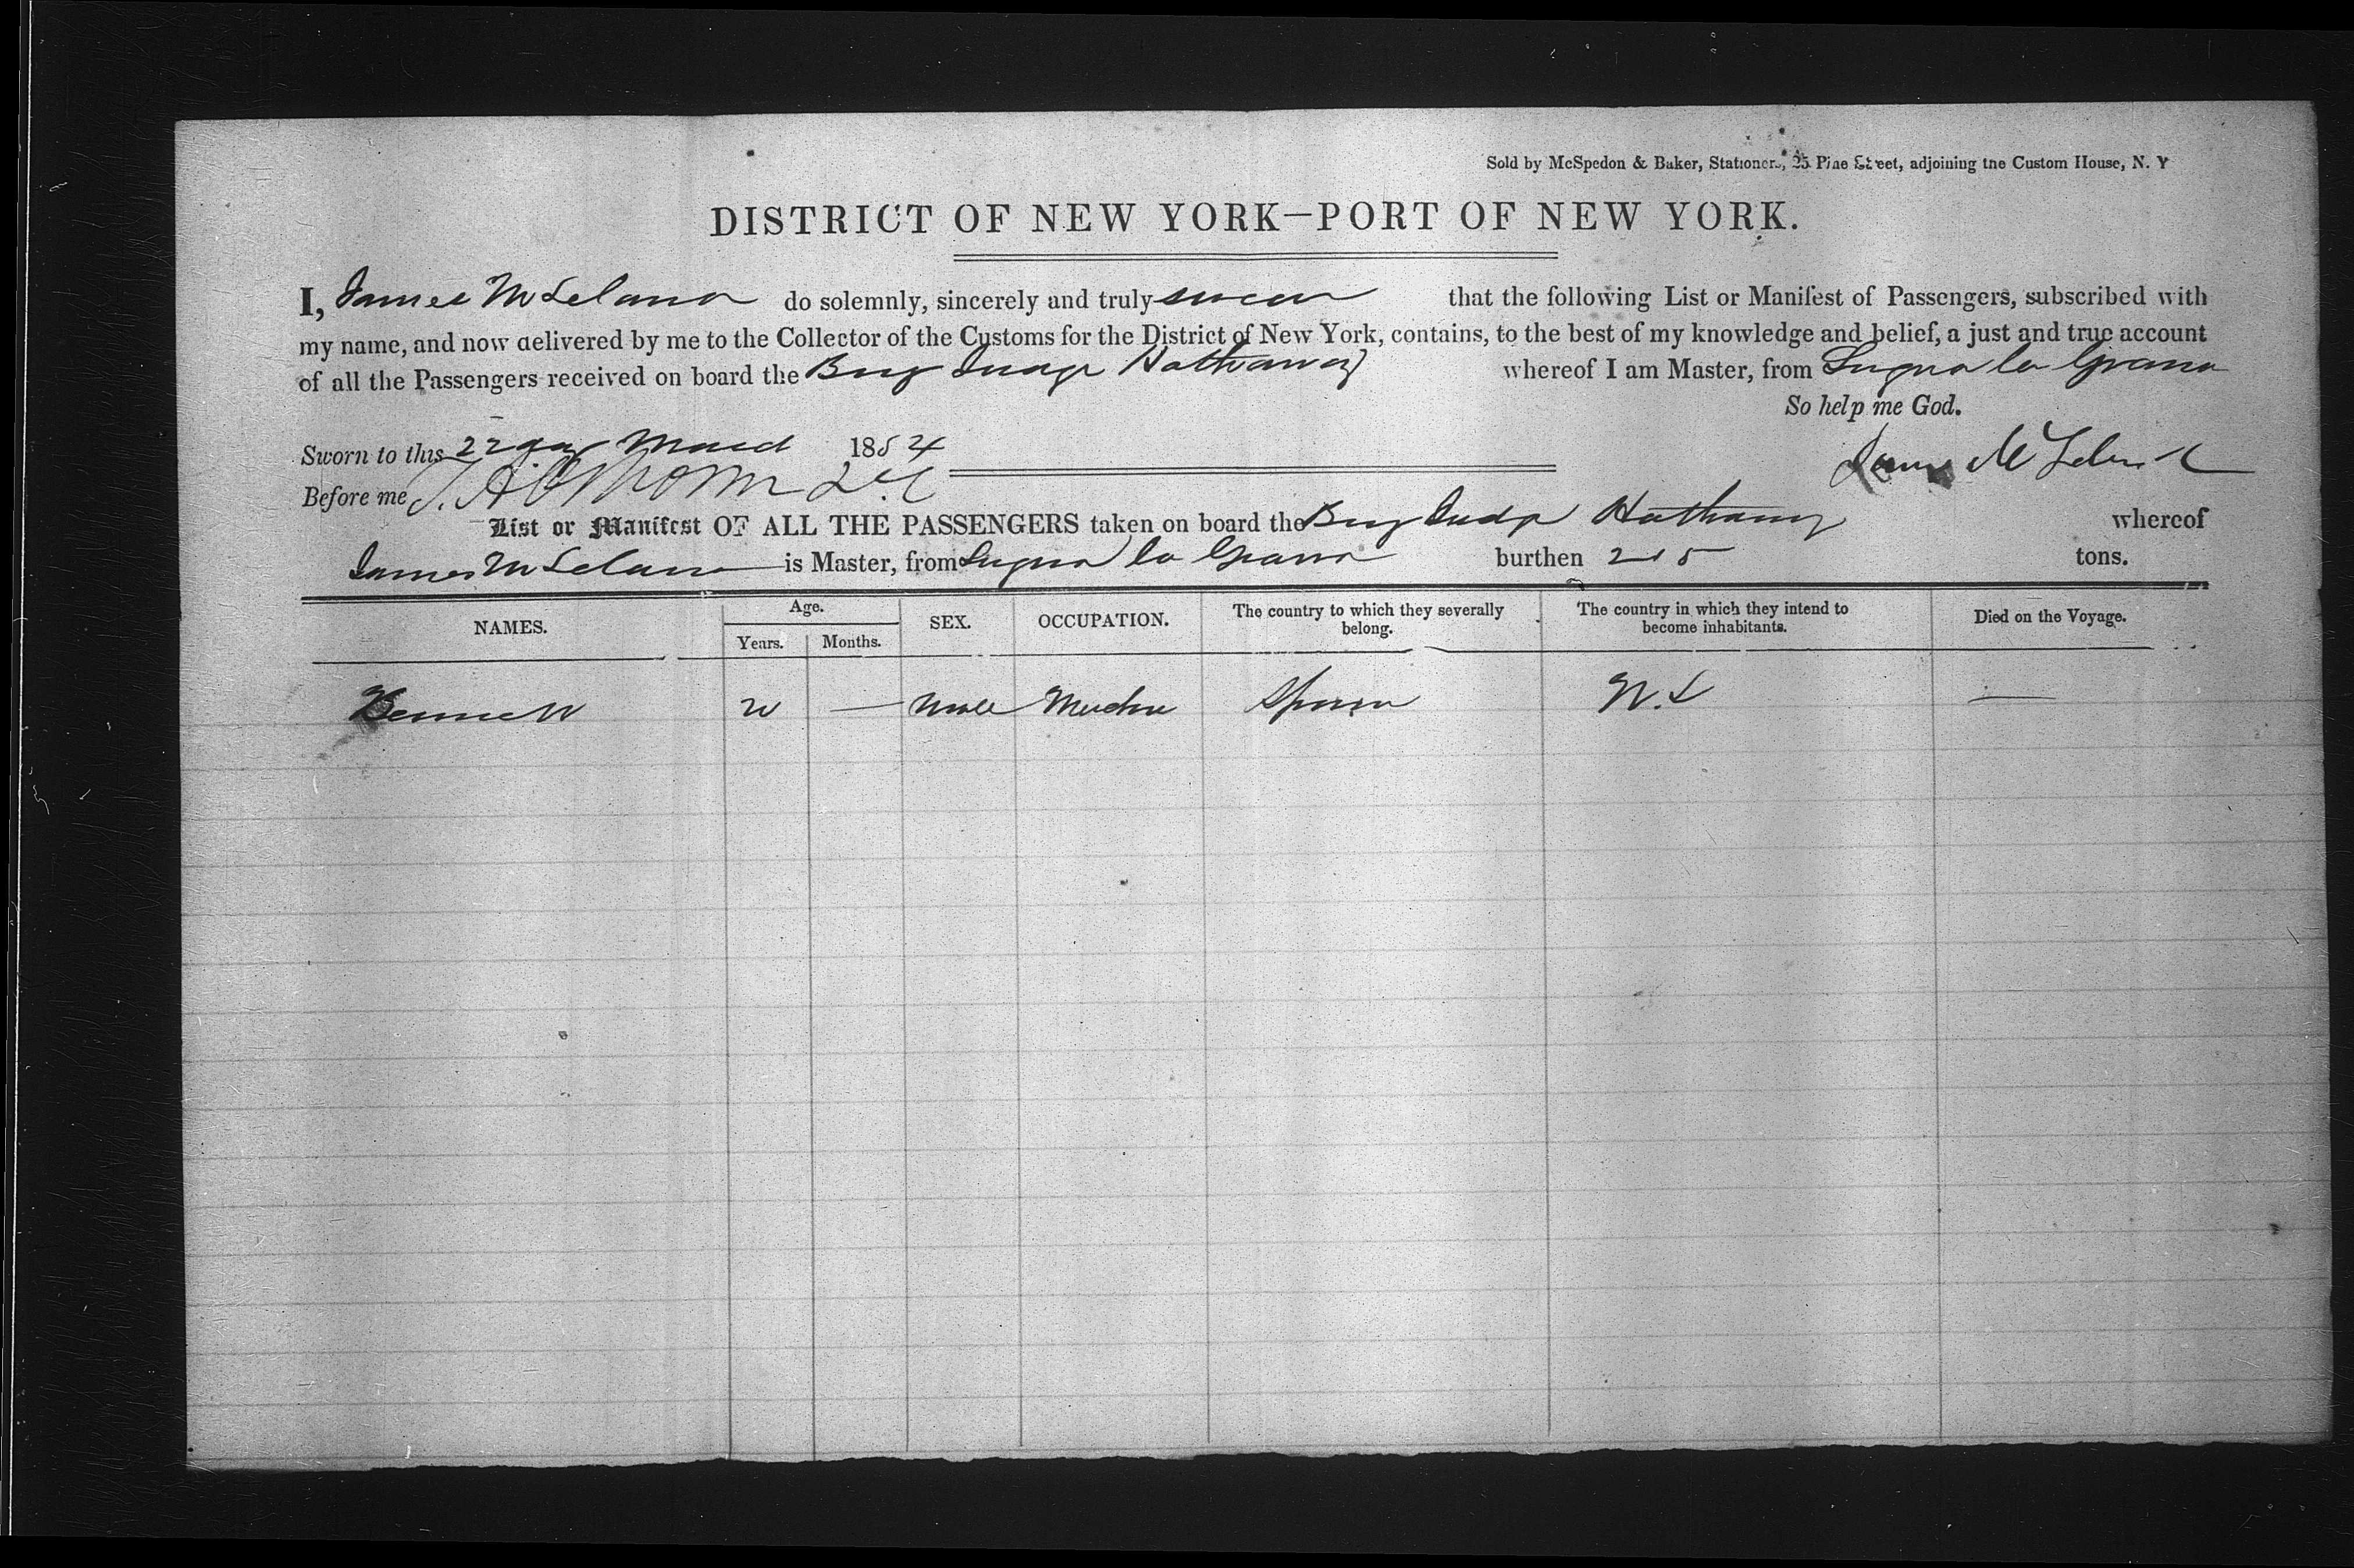 Sold by McSpedon & Baker, Stationers, 25 Pine Street, adjoining the Custom House, N. Y
DISTRICT OF NEW YORK—PORT OF NEW YORK.
I, James McLeland do solemnly, sincerely and truly swear that the following List or Manifest of Passengers, subscribed with
my name, and now delivered by me to the Collector of the Customs for the District of New York, contains, to the best of my knowledge and belief, a just and true account
of all the Passengers received on board the Brig Judge Hathaway whereof I am Master, from Sagua la Grand
So help me God.
Sworn to this 22 day March 1854
James McLeland
Before me
List or Manifest OF ALL THE PASSENGERS taken on board the Brig Judge Hathaway whereof
James McLeland is Master, from Sagua la Grand burthen 215 tons.
NAMES. Age. Years. Months. SEX. OCCUPATION. The country to which they severally belong. The country in which they intend to become inhabitants. Died on the Voyage.
male Spain —